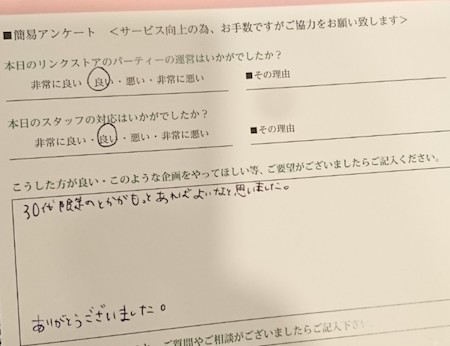 ■簡易アンケート ＜サービス向上の為、お手数ですがご協力をお願い致します＞
本日のリンクストアのパーティーの運営はいかがでしたか？
非常に良い・良い・悪い・非常に悪い ■その理由
本日のスタッフの対応はいかがでしたか？
非常に良い・良い・悪い・非常に悪い ■その理由
こうした方が良い・このような企画をやってほしい等、ご要望がございましたらご記入ください。
30代限定のとかがもっとあればよいなと思いました。
ありがとうございました。
ご質問やご相談がございましたらご記入下さい。